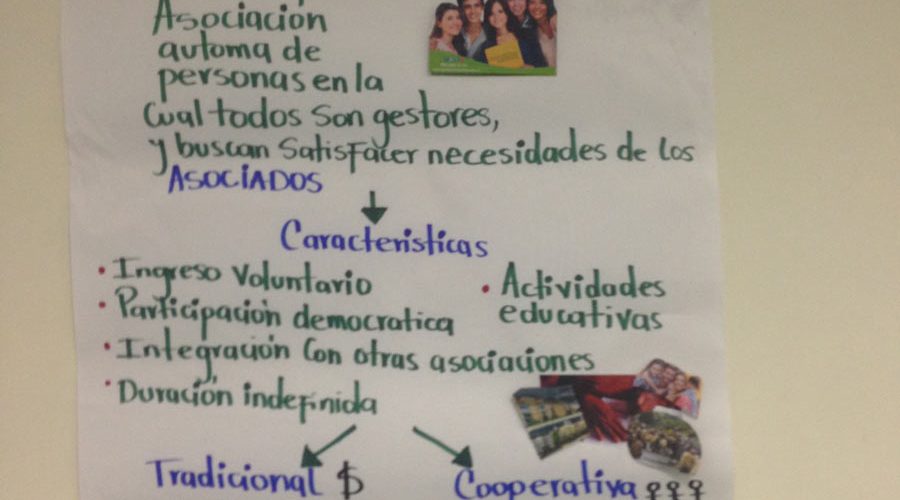 Asociación
automa de
personas en la
Cual todos son gestores,
y buscan Satisfacer necesidades de los
ASOCIADOS
Caracteristicas
• Ingreso Voluntario
• Participación democratica
• Integración Con otras asociaciones
• Duración indefinida
• Actividades
educativas
Tradicional $
Cooperativa